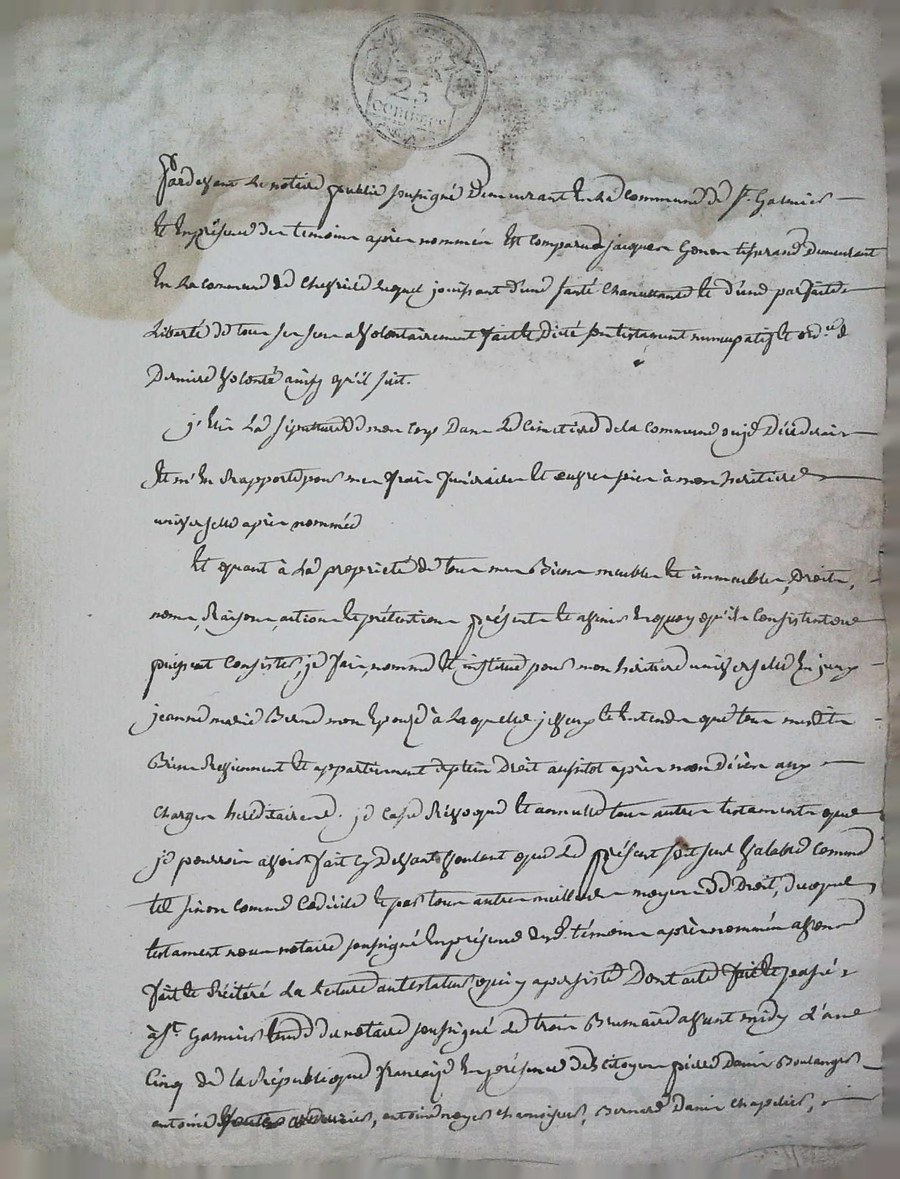 25
CENTIMES
Pardevant Le notaire public soussigné Demeurant En La Commune de St. Galmier
Et En présence des temoins après nommés Est comparu jacques Gonon tisserand Demeurant
En La Commune de Chevrieres Lequel jouissant d'une santé Chancellante Et d'une parfaite
Liberté de tous ses sens a volontairement fait Et Dicté son testament nuncupatif Et ord.re de
Derniere volonté ainsy qu'il suit.
j'Elis La sépulture de mon Corps Dans Le Cimetiere de la Commune ou je Décéderais
Et m'En Rapporte pour mes frais funéraires Et œuvres pies à mon héritiere
universelle après nommée
Et quant à La propriété de tous mes Biens meubles Et immeubles, Droits,
noms, Raisons, actions Et prétentions présents Et avenir En quoy qu'ils Consistent ou
puissent Consister, je fais, nomme Et institue pour mon héritiere universelle
jeanne marie mon Epouse à Laquelle je veux Et Entends que tous mesdits
Biens Reviennent Et appartiennent de plein Droit aussitot après mon Décès aux
charges héréditaires. je Casse Révoque Et annulle tous autres testaments que
je pourrois avoir fait cy Devant voulant que Le présent soit seul valable Comme
tel sinon Comme Codicile Et par tous autres meilleurs moyens de Droit, duquel
testament nous notaire soussigné En présence desd. témoins après nommés avons
fait Et Réitéré La lecture au testateur qui y a persisté Dont acte fait Et passé
à St. Galmier Etude du notaire soussigné Le trois Brumaire avant midy L'an
Cinq de la République française En présence des Citoyens pierre Denis Boulanger
antoine antoine noyer chamoiseur, Bernard Denis chapelier,